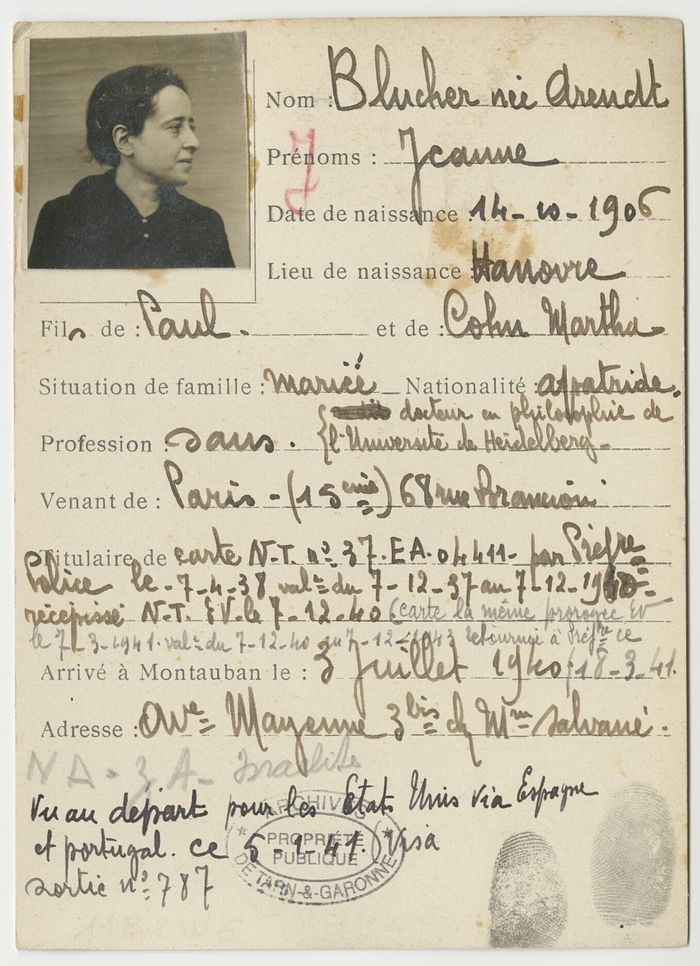 Nom : Blucher née Arendt
J
Prénoms : Jeanne
Date de naissance 14-10-1906
Lieu de naissance : Hanovre
Fils de : Paul. et de : Cohn Martha
Situation de famille : mariée Nationalité : apatride.
docteur en philosophie de
Profession : sans. l'Université de Heidelberg-
Venant de : Paris - (15ème) 68 rue Brancion
Titulaire de carte N.T. n° 37.EA.04411- par Préfre
Police le -7-4-38 val= du 7-12-37 au 7-12-
récépissé N.T. EV. le 7-12-40 (carte la même prorogée EV
le 7-3-1941. val= du 7-12-40 au 7-12-1943 retournée à Préfre ce
Arrivé à Montauban le : 3 Juillet 1940 18-3-41.
Adresse : Ave= Mayenne 3bis ch Mme Salvané.
N A - J A - Israélite
Vu au départ pour les Etats Unis via Espagne
et portugal. ce 5-1-41. Visa
sortie n° 787
ARCHIVES
PROPRIÉTÉ
PUBLIQUE
DE TARN-&-GARONNE